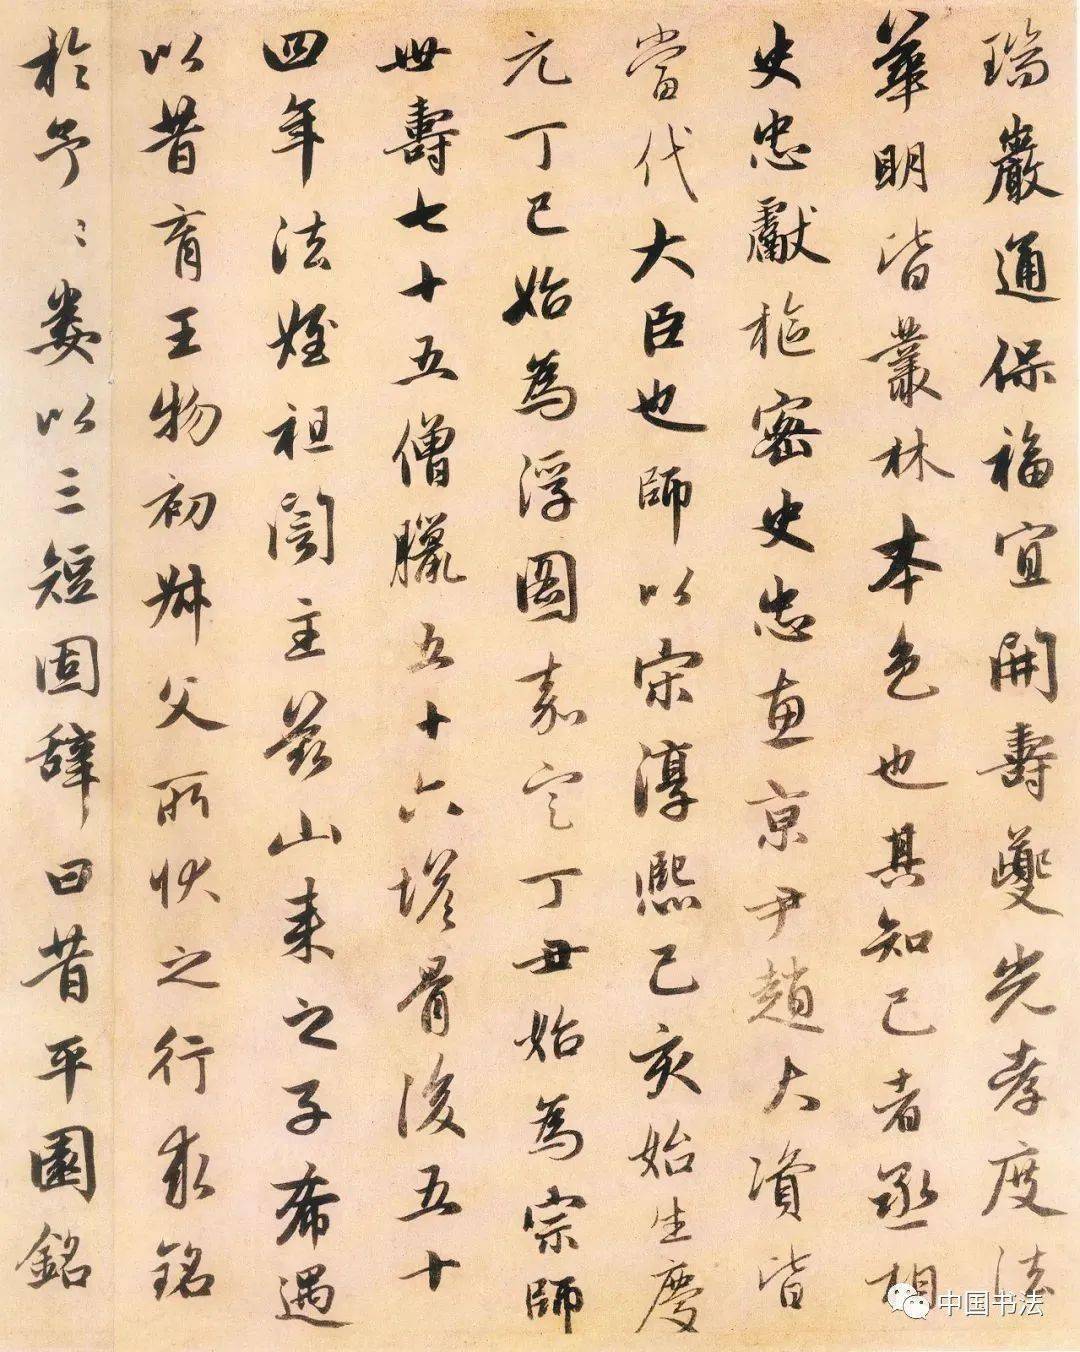 瑞巖通保福宜開壽夔光孝度法
華明皆叢林本色也其知己者丞相
史忠獻樞密史忠惠京尹趙大資皆
當代大臣也師以宋淳熙己亥始生慶
元丁巳始為浮圖嘉定丁丑始為宗師
世壽七十五僧臘五十六塔骨後五十
四年法姪祖誾主茲山來之子希遇
以昔育王物初姊父所狀之行求銘
於予〻婁以三短固辭曰昔平園銘
中国书法